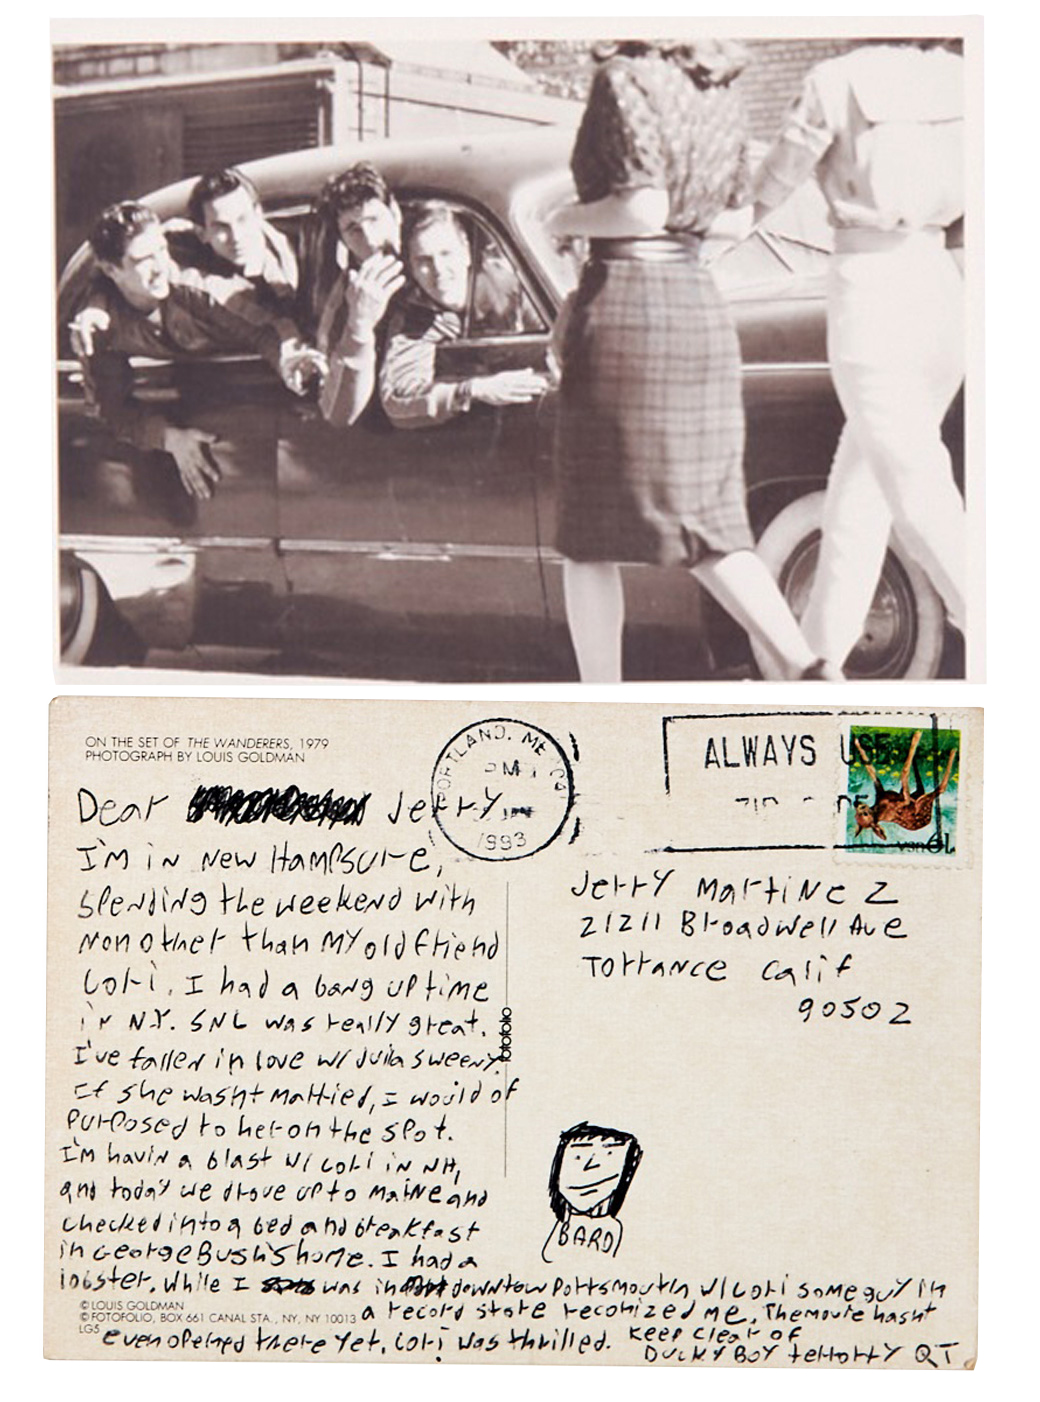 ON THE SET OF THE WANDERERS, 1979
PHOTOGRAPH BY LOUIS GOLDMAN
PORTLAND, ME
PM
1993
ALWAYS USE
19 USA
Dear Jerry,
I'm in New Hampsure,
spending the weekend with
non other than my old friend
Cori. I had a bang up time
in N.Y. SNL was really great.
I've fallen in love w/ Julia Sweeny.
If she wasnt married, I would of
purposed to her on the spot.
I'm havin a blast w/ Cori in NH,
and today we drove up to Maine and
checked into a bed and breakfast
in George Bush's home. I had a
lobster. While I was in downtow Portsmouth w/ Cori some guy in
a record store reconized me. The movie hasnt
even opened there yet. Cori was thrilled. Keep clear of
Ducky Boy terrorty QT
© LOUIS GOLDMAN
© FOTOFOLIO, BOX 661 CANAL STA., NY, NY 10013
LG5
fotofolio
Jerry Martinez
21211 Broadwell Ave
Torrance Calif
90502
(BARD)